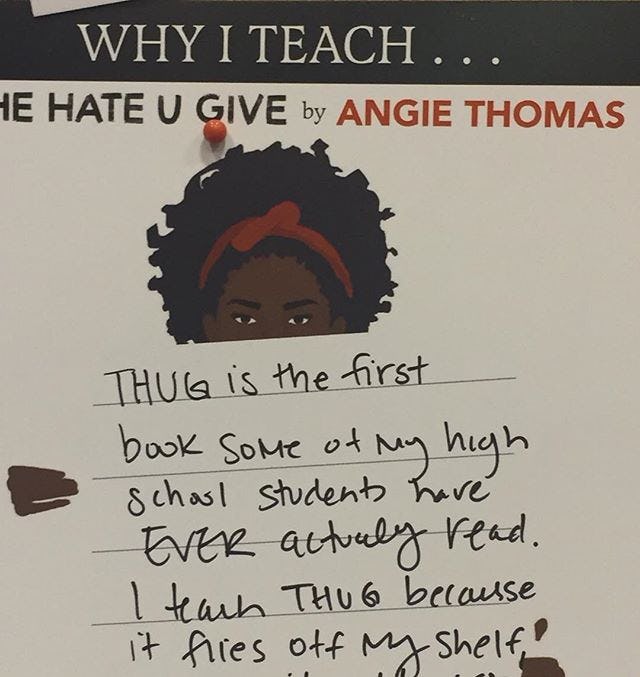 WHY I TEACH . . .
HE HATE U GIVE by ANGIE THOMAS
THUG is the first
book some of my high
school students have
EVER actually read.
I teach THUG because
it flies off my shelf,